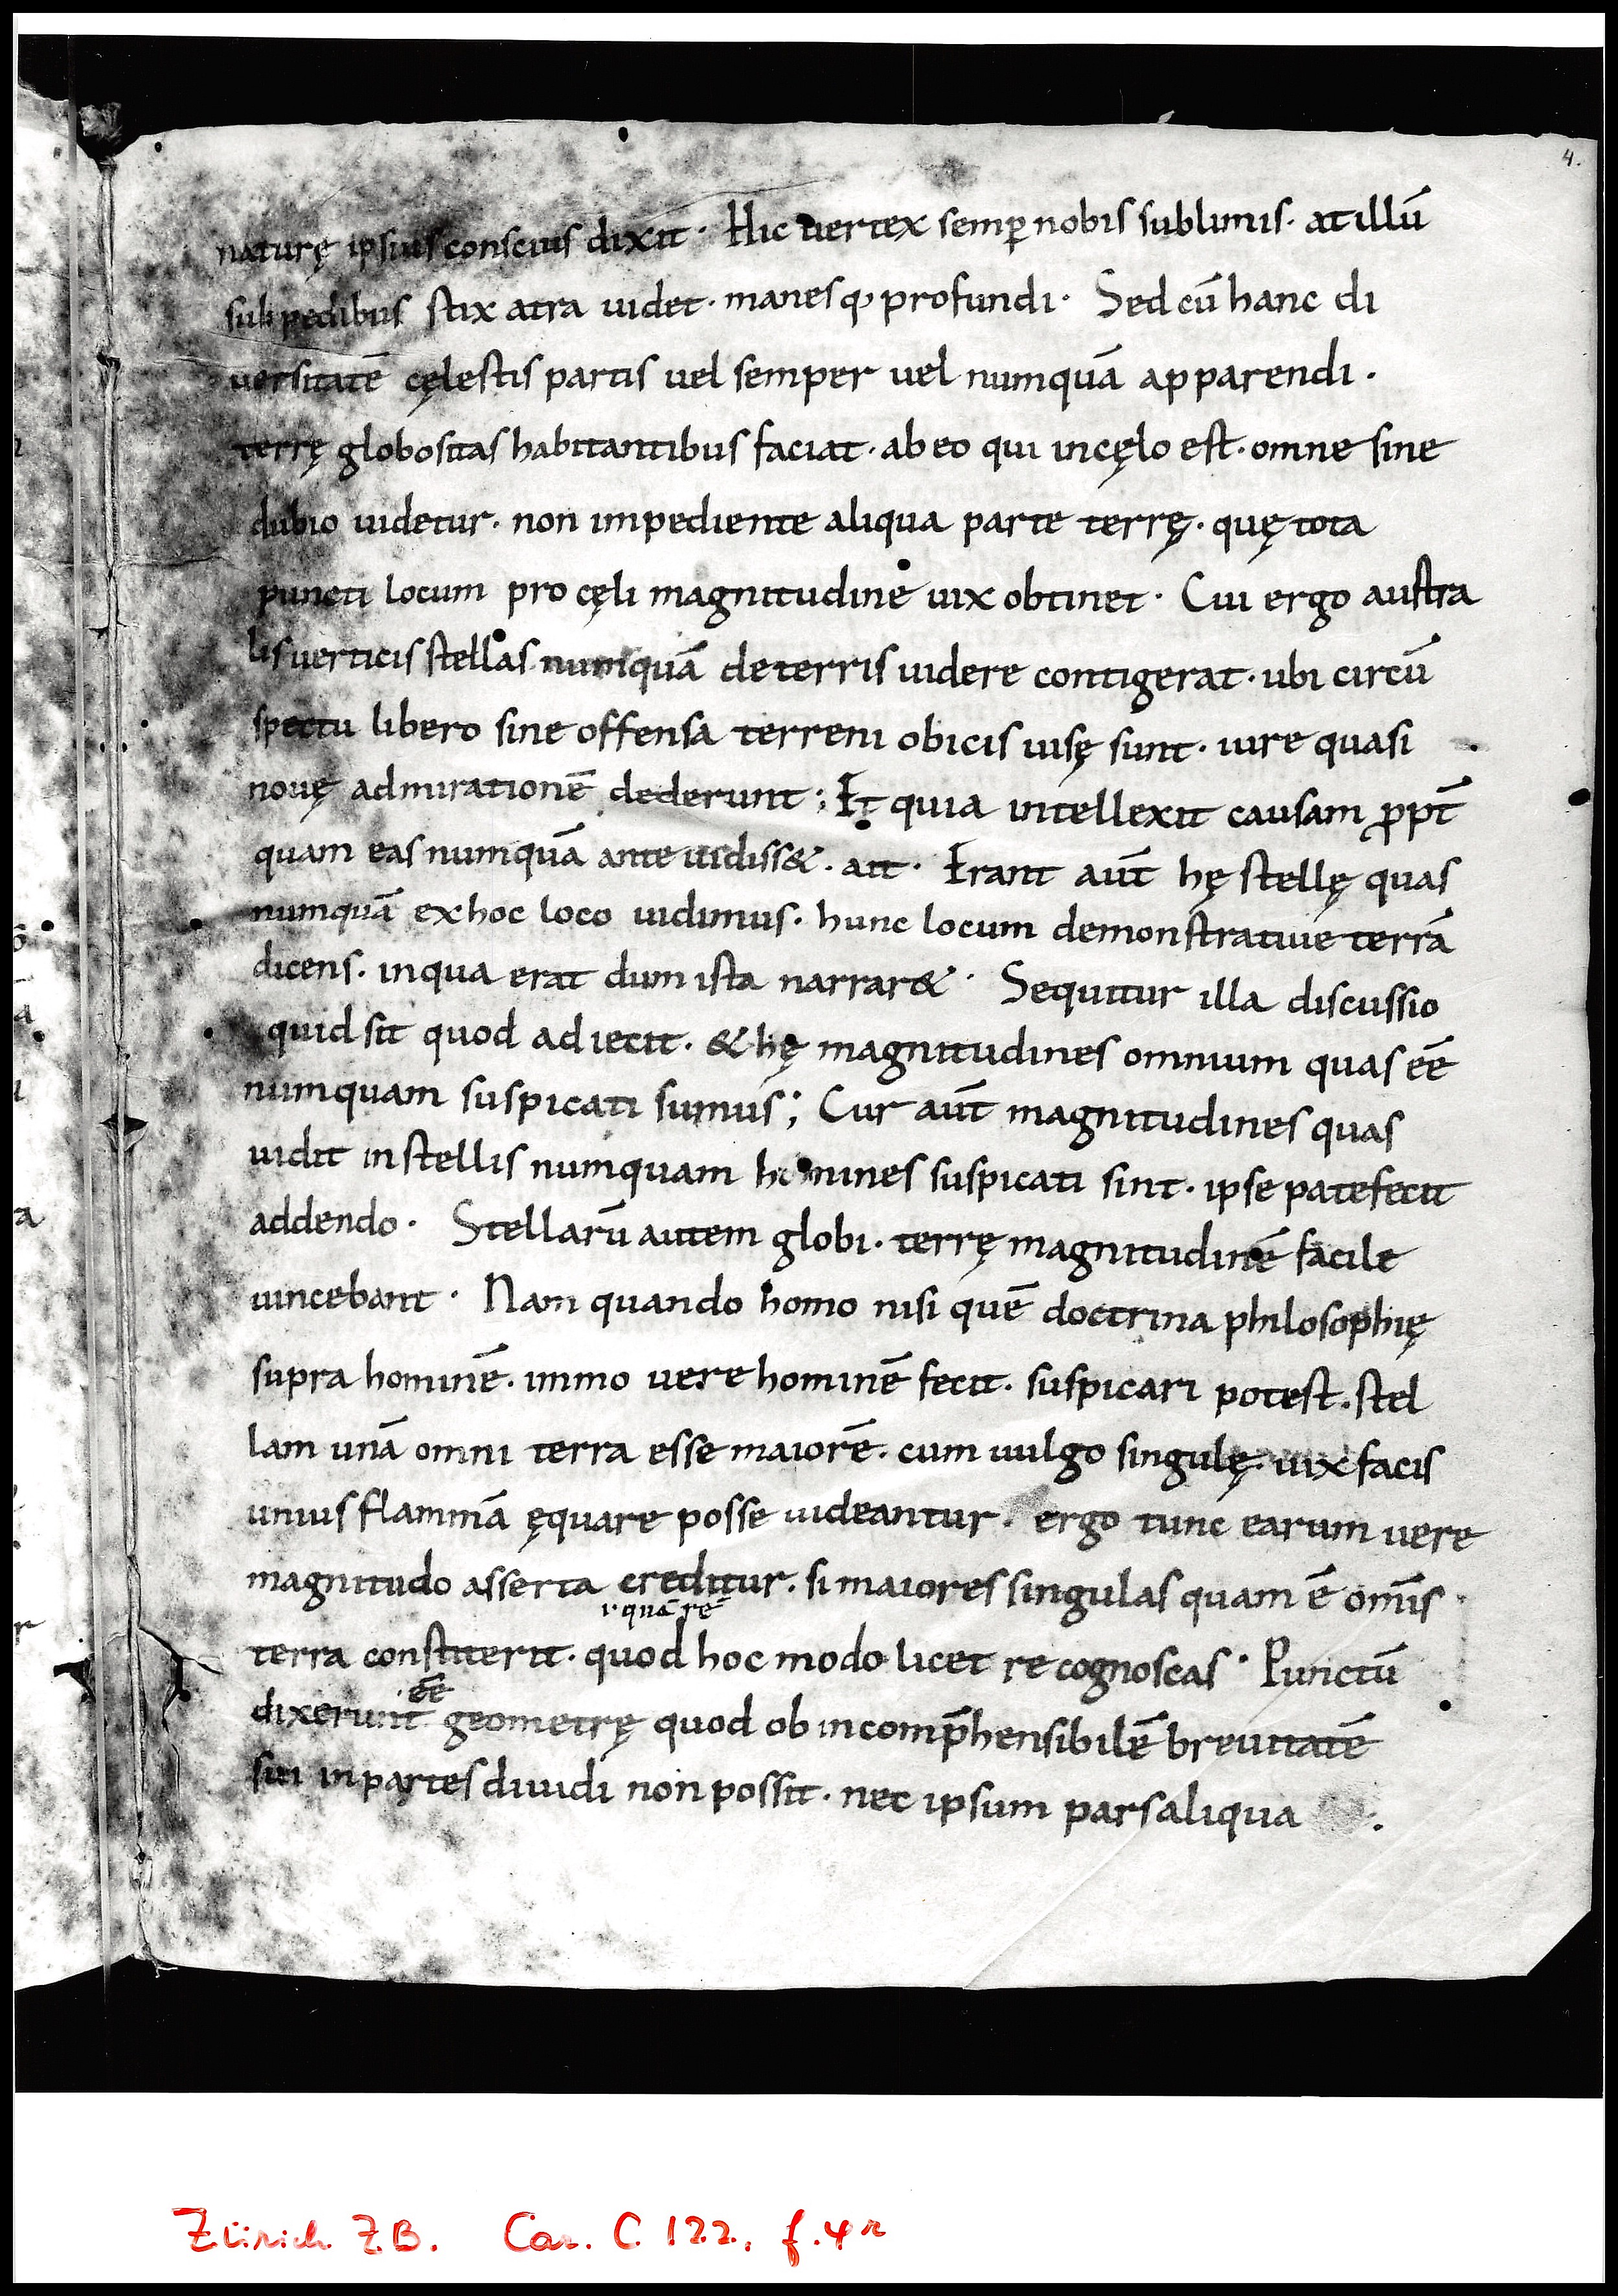 4.
naturę ipsius conscius dixit · Hic vertex semꝑ nobis sublimis · at illū
sub pedibus stix atra uidet · manesq; profundi · Sed cū hanc di
uersitatē cęlestis partis uel semper uel numquā apparendi ·
terrę globositas habitantibus faciat · ab eo qui in cęlo est · omne sine
dubio uidetur · non impediente aliqua parte terrę · quę tota
puncti locum pro cęli magnitudine uix obtinet · Cui ergo austra
lis uerticis stellas numquā de terris uidere contigerat · ubi circū
spectu libero sine offensa terreni obicis uisę sunt · iure quasi
nouę admirationē dederunt ; Et quia intellexit causam ꝓpt̄
quam eas numquā ante uidiss& · ait · Erant aut̄ hę stellę quas
numquā ex hoc loco uidimus · hunc locum demonstratiue terrā
dicens · in qua erat dum ista narrar& · Sequitur illa discussio
quid sit quod adiecit · & hę magnitudines omnium quas ēē
numquam suspicati sumus ; Cur aut̄ magnitudines quas
uidit in stellis numquam homines suspicati sint · ipse patefecit
addendo · Stellarū autem globi · terrę magnitudinē facile
uincebant · Nam quando homo nisi quē doctrina philosophię
supra hominē · immo vere hominē fecit · suspicari potest · stel
lam unā omni terra esse maiorē · cum uulgo singulę · uix facis
unius flammā ęquare posse uideantur · ergo tunc earum vere
magnitudo asserta creditur · si maiores singulas quam ē om̄is
ı· quā rē
terra constiterit · quod hoc modo licet recognoscas · Punctū
ēē
dixerunt geometrę quod ob incomp̄hensibilē breuitatē
sui in partes diuidi non possit · nec ipsum pars aliqua
Zürich Z.B. Car. C 122, f. 4r